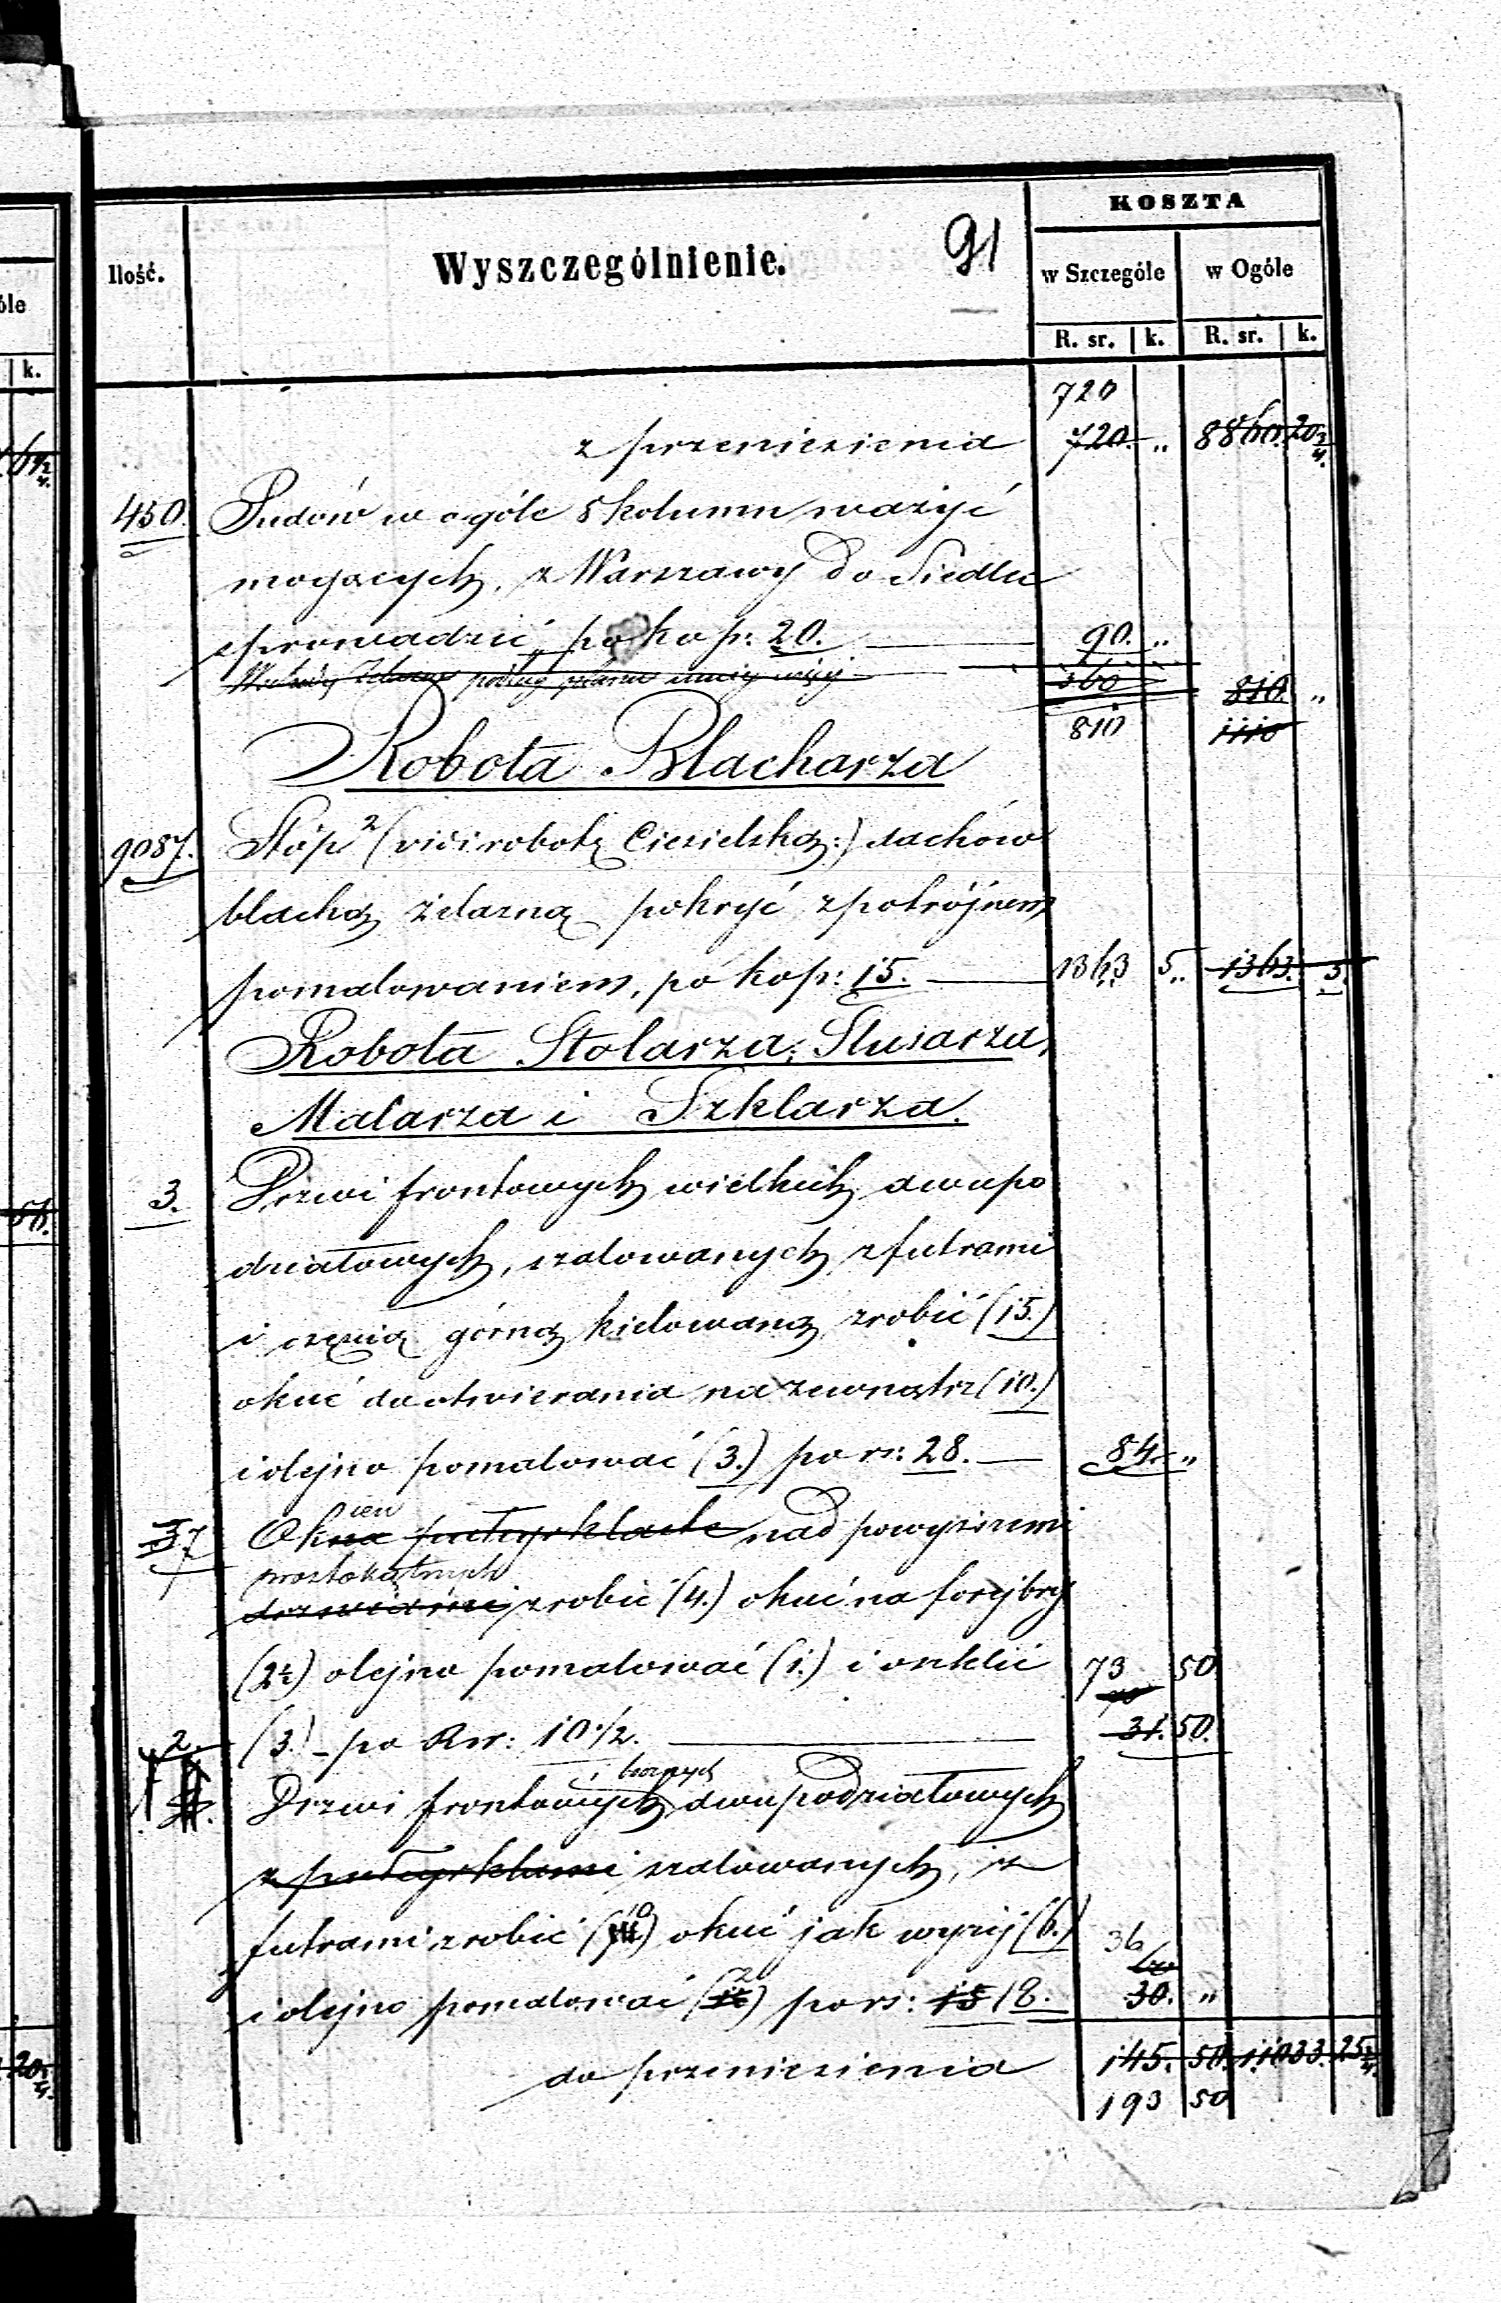 91
KOSZTA
Ilość. Wyszczególnienie. w Szczególe w Ogóle
R. sr. k. R. sr. k.
720
z przeniesienia 720. „ 8860. 20 3/4.
450. Pudów w ogóle 8 kolumn ważyć
mogących, z Warszawy do Siedlec
sprowadzić, po kop: 20. 90. „
360 810. „
810 1110
Robota Blacharza
9087. Stóp² (vidi robotę Ciesielską:) dachów
blachą żelazną pokryć z potrójnem
pomalowaniem, po kop: 15. 1363 5„ 1363. 5.
Robota Stolarza, Slusarza,
Malarza i Szklarza.
3. Drzwi frontowych wielkich dwupo
działowych, szalowanych z futrami
i częścią górną kielowaną zrobić (15.)
okuć do otwierania na zewnątrz (10.)
i olejno pomalować (3.) po rs: 28. 84. „
ien
3 7 Okna półcyrklaste nad powyższemi
prostokątnych
drzwiami zrobić (4.) okuć na forejbry
(2½) olejno pomalować (1.) i oszklić 73 50
(3.) po Rsr: 10 1/2. 31. 50.
2. i bocznych
Drzwi frontowych dwupodziałowych
z półcyrklami szalowanych, i z
futrami zrobić (10) okuć jak wyżej (6.) 36
i olejno pomalować (2) po rs: 15 18. 30. „
do przeniesienia 145. 50. 11033. 25 3/4.
193 50